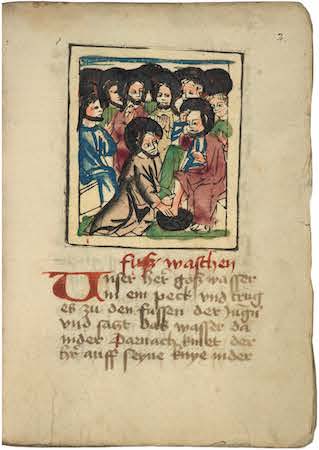 fusz waschen
Unser her gosz wasser
in ein peck und trug
es zu den fussen der Jungñ
und satzt das wasser da
nider Darnach kniet der
hr̃ auff seyne knye nider